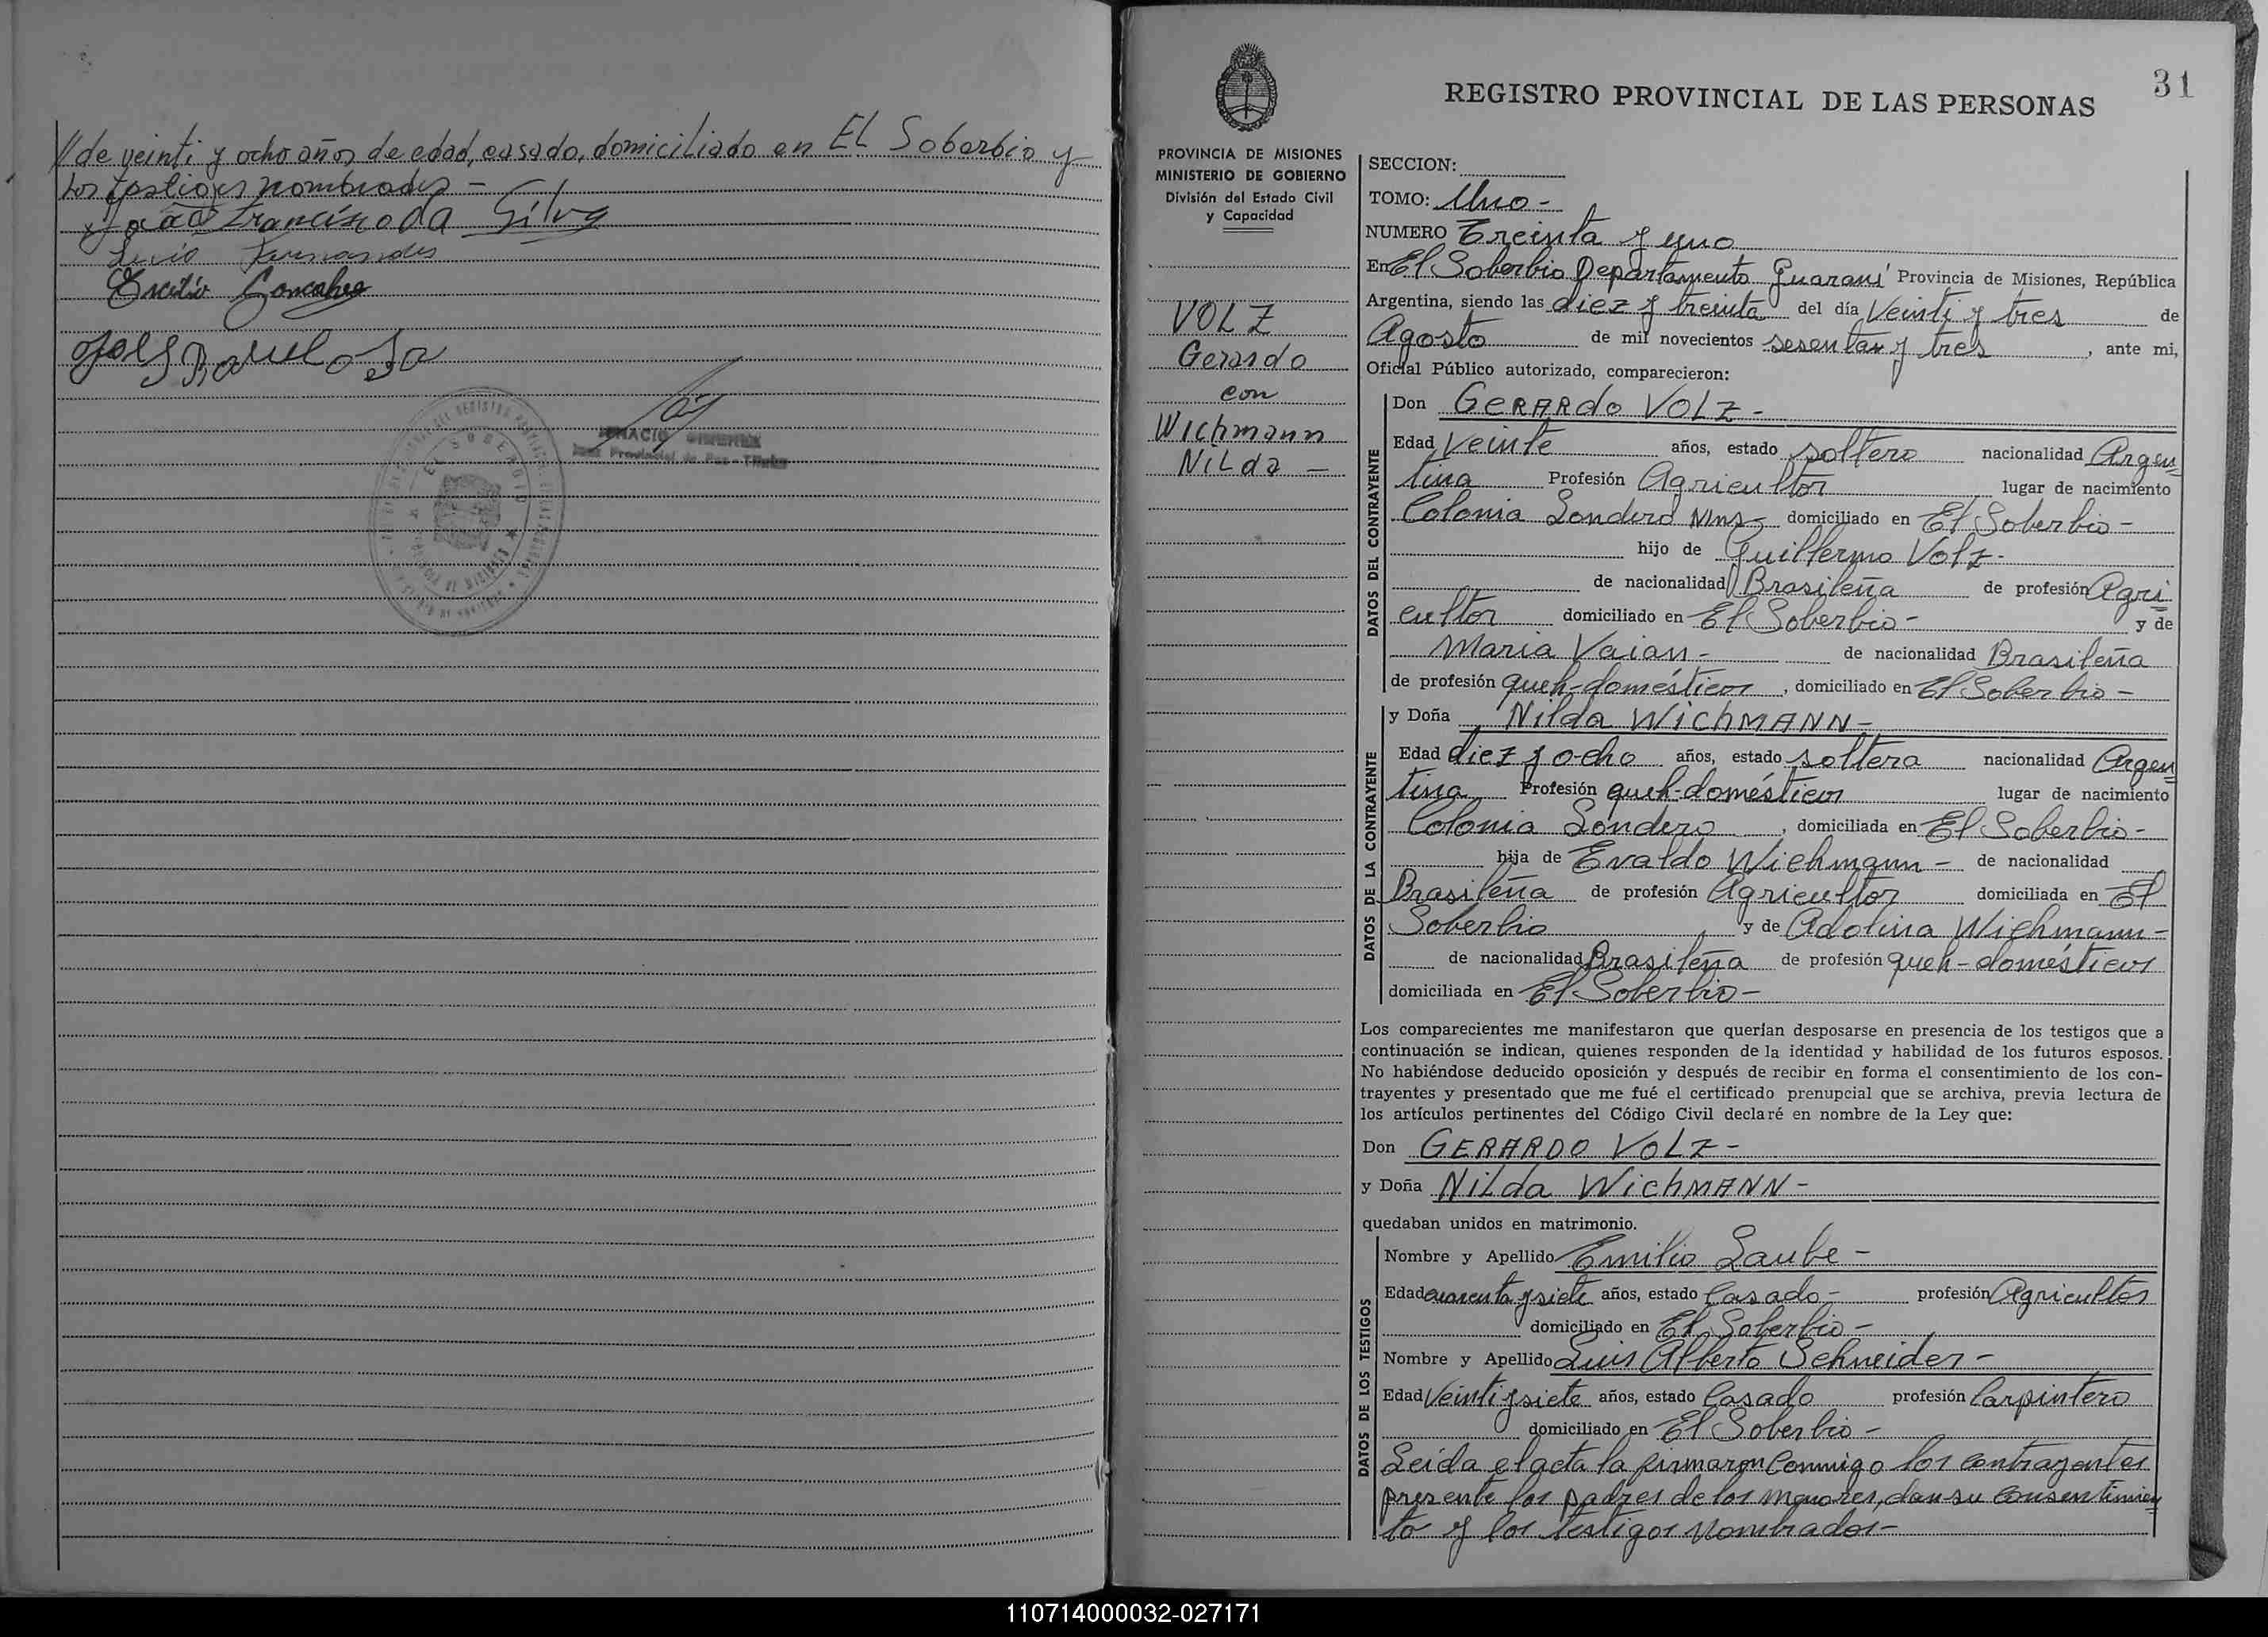 //de veinti y ocho años de edad, casado, domiciliado en El Soberbio y
los testigos nombrados -
x João Francisco da Silva
Lucio Fernandes
Gonsalves
IGNACIO GIMENEZ
Juez Provincial de Paz - Titular
EL SOBERBIO
31
REGISTRO PROVINCIAL DE LAS PERSONAS
PROVINCIA DE MISIONES
MINISTERIO DE GOBIERNO
División del Estado Civil
y Capacidad
VOLZ
Gerardo
con
Wichmann
Nilda -
SECCION:
TOMO: Uno -
NUMERO Treinta y uno
En El Soberbio Departamento Guaraní Provincia de Misiones, República
Argentina, siendo las diez y treinta del día Veinti y tres de
Agosto de mil novecientos sesenta y tres, ante mi,
Oficial Público autorizado, comparecieron:
DATOS DEL CONTRAYENTE
Don GERARDO VOLZ -
Edad Veinte años, estado soltero nacionalidad Argen=
tina Profesión Agricultor lugar de nacimiento
Colonia Londero Mns, domiciliado en El Soberbio -
hijo de Guillermo Volz -
de nacionalidad Brasileña de profesión Agri=
cultor domiciliado en El Soberbio - y de
Maria Vaian - de nacionalidad Brasileña
de profesión queh-domésticos, domiciliado en El Soberbio -
DATOS DE LA CONTRAYENTE
y Doña Nilda WichMANN -
Edad diez y ocho años, estado soltera nacionalidad Argen=
tina Profesión queh-domésticos lugar de nacimiento
Colonia Londero, domiciliada en El Soberbio -
hija de Evaldo Wichmann - de nacionalidad
Brasileña de profesión Agricultor domiciliada en El
Soberbio y de Adolina Wichmann -
de nacionalidad Brasileña de profesión queh-domésticos
domiciliada en El Soberbio -
Los comparecientes me manifestaron que querían desposarse en presencia de los testigos que a
continuación se indican, quienes responden de la identidad y habilidad de los futuros esposos.
No habiéndose deducido oposición y después de recibir en forma el consentimiento de los con-
trayentes y presentado que me fué el certificado prenupcial que se archiva, previa lectura de
los artículos pertinentes del Código Civil declaré en nombre de la Ley que:
Don GERARDO VOLZ -
y Doña Nilda WichMANN -
quedaban unidos en matrimonio.
DATOS DE LOS TESTIGOS
Nombre y Apellido Emilio Laube -
Edad cuarenta y siete años, estado Casado - profesión Agricultor
domiciliado en El Soberbio -
Nombre y Apellido Luis Alberto Schneider -
Edad Veinti y siete años, estado Casado profesión Carpintero
domiciliado en El Soberbio -
Leida el acta la firmaron Conmigo los contrayentes
presente los padres de los menores, dan su consentimien
to y los testigos nombrados -
110714000032-027171